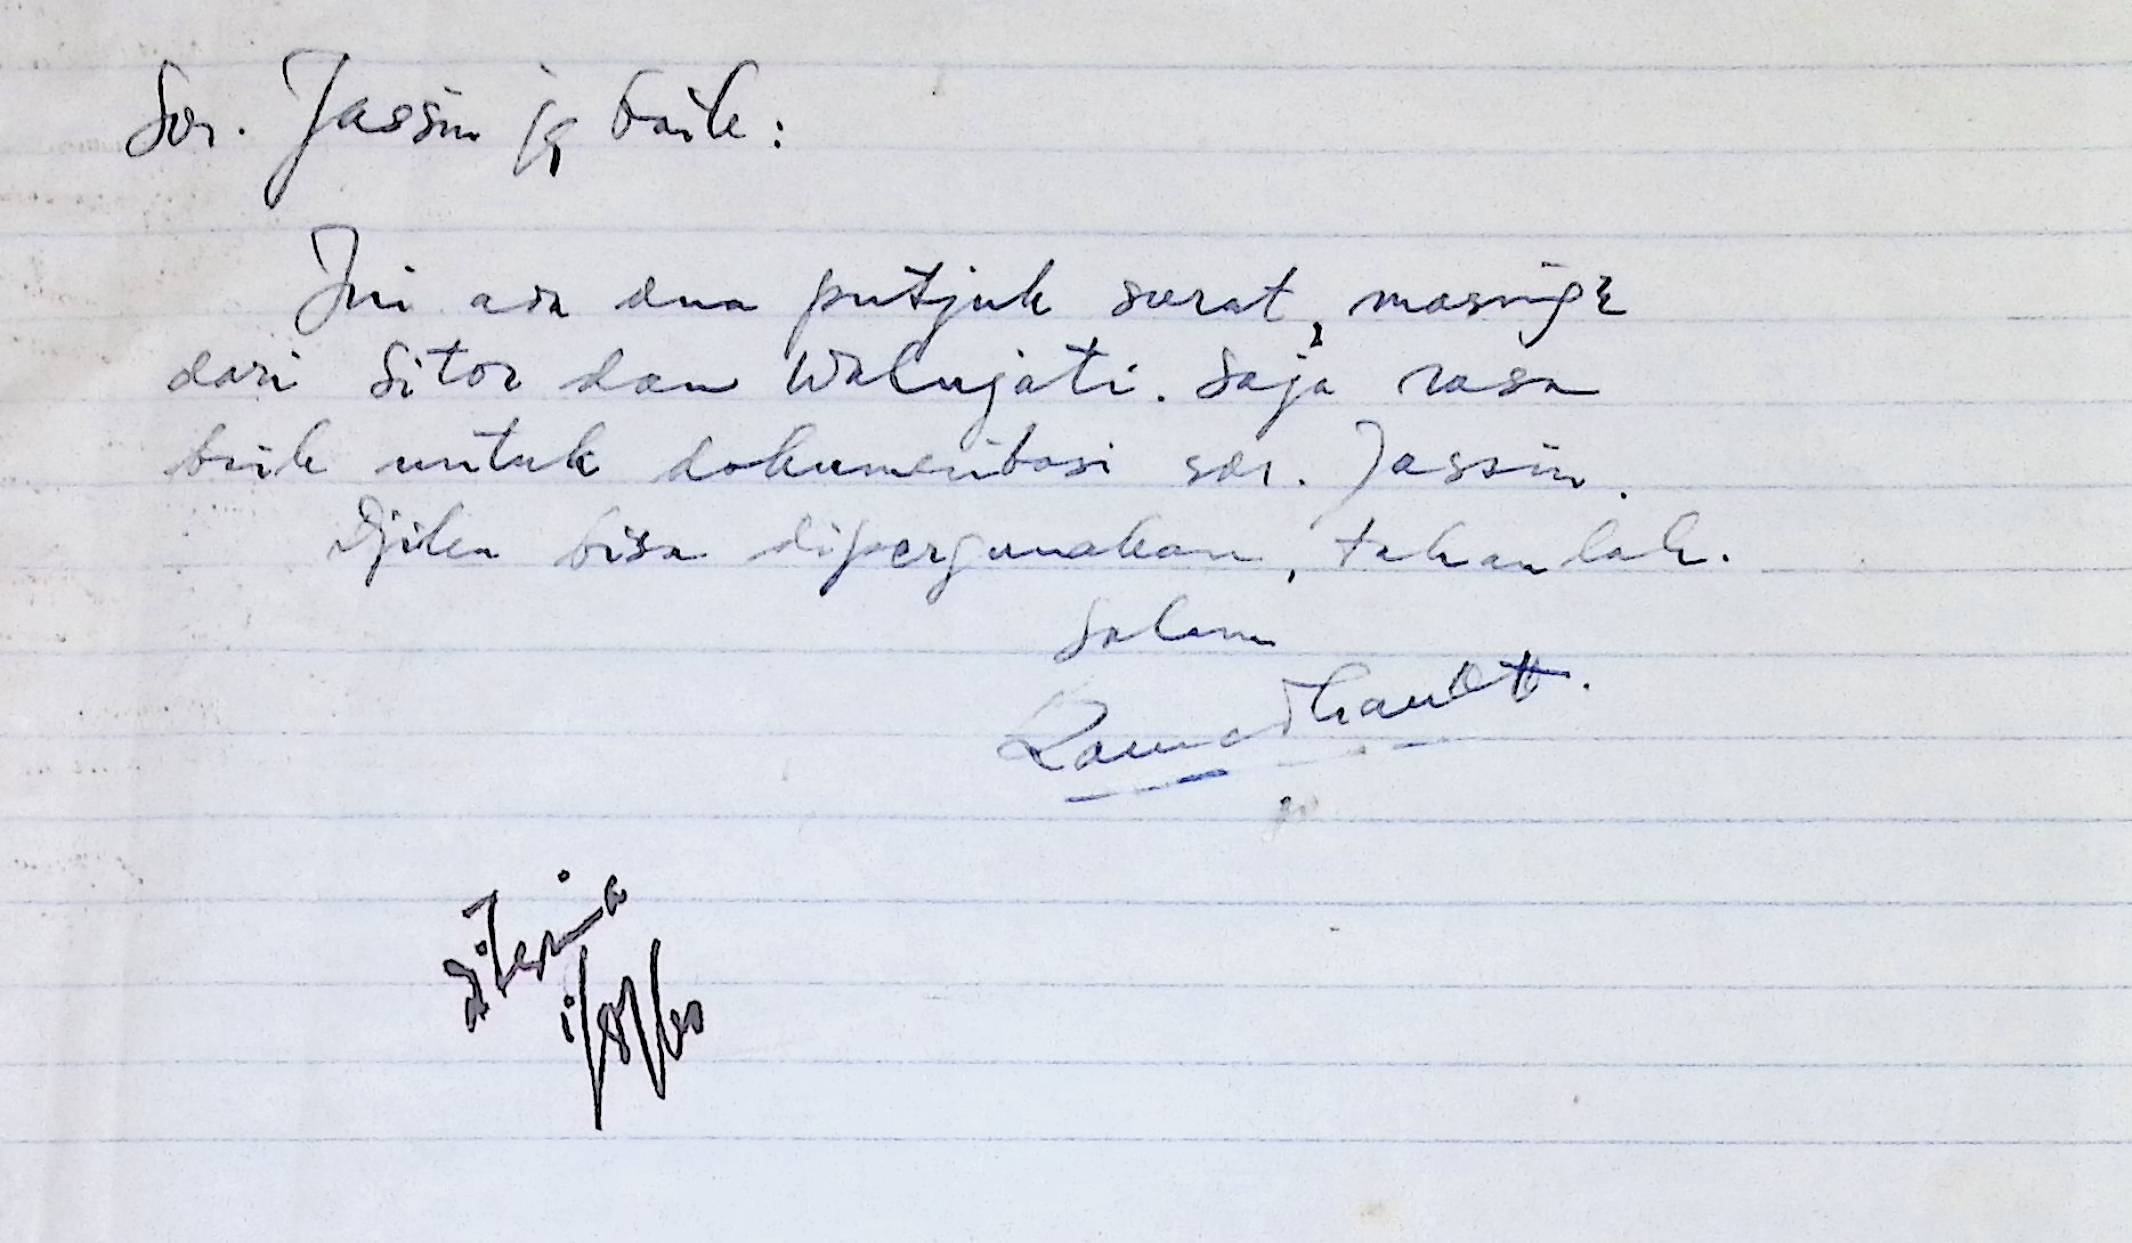 Sdr. Jassin jg baik:
Ini ada dua putjuk surat, masing2
dari Sitor dan Walujati. Saja rasa
baik untuk dokumentasi sdr. Jassin.
Djika bisa dipergunakan, tahanlah.
Salam
Ramadhan KH.
diterima